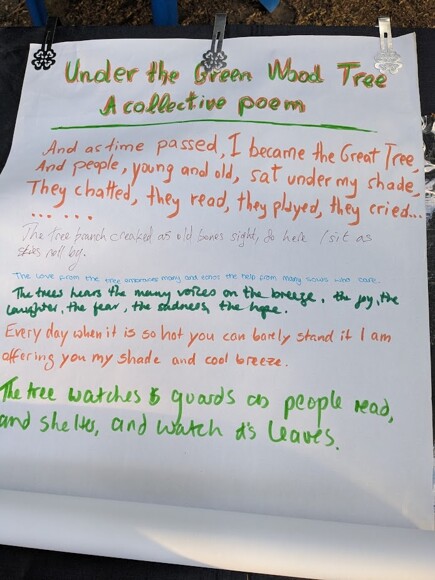 Under the Green Wood Tree
A collective poem
And as time passed, I became the Great Tree,
And people, young and old, sat under my shade,
They chatted, they read, they played, they cried...
... ...
The Tree branch creaked as old bones sight, do here I sit as
skies roll by.
The love from the tree among many and echos the help from many souls who care.
The trees hears the many voices on the breeze, the joy, the
laughter, the fear, the sadness, the hope.
Every day when it is so hot you can barely stand it I am
offering you my shade and cool breeze.
The tree watches & guards as people read,
and shelter, and watch its leaves.